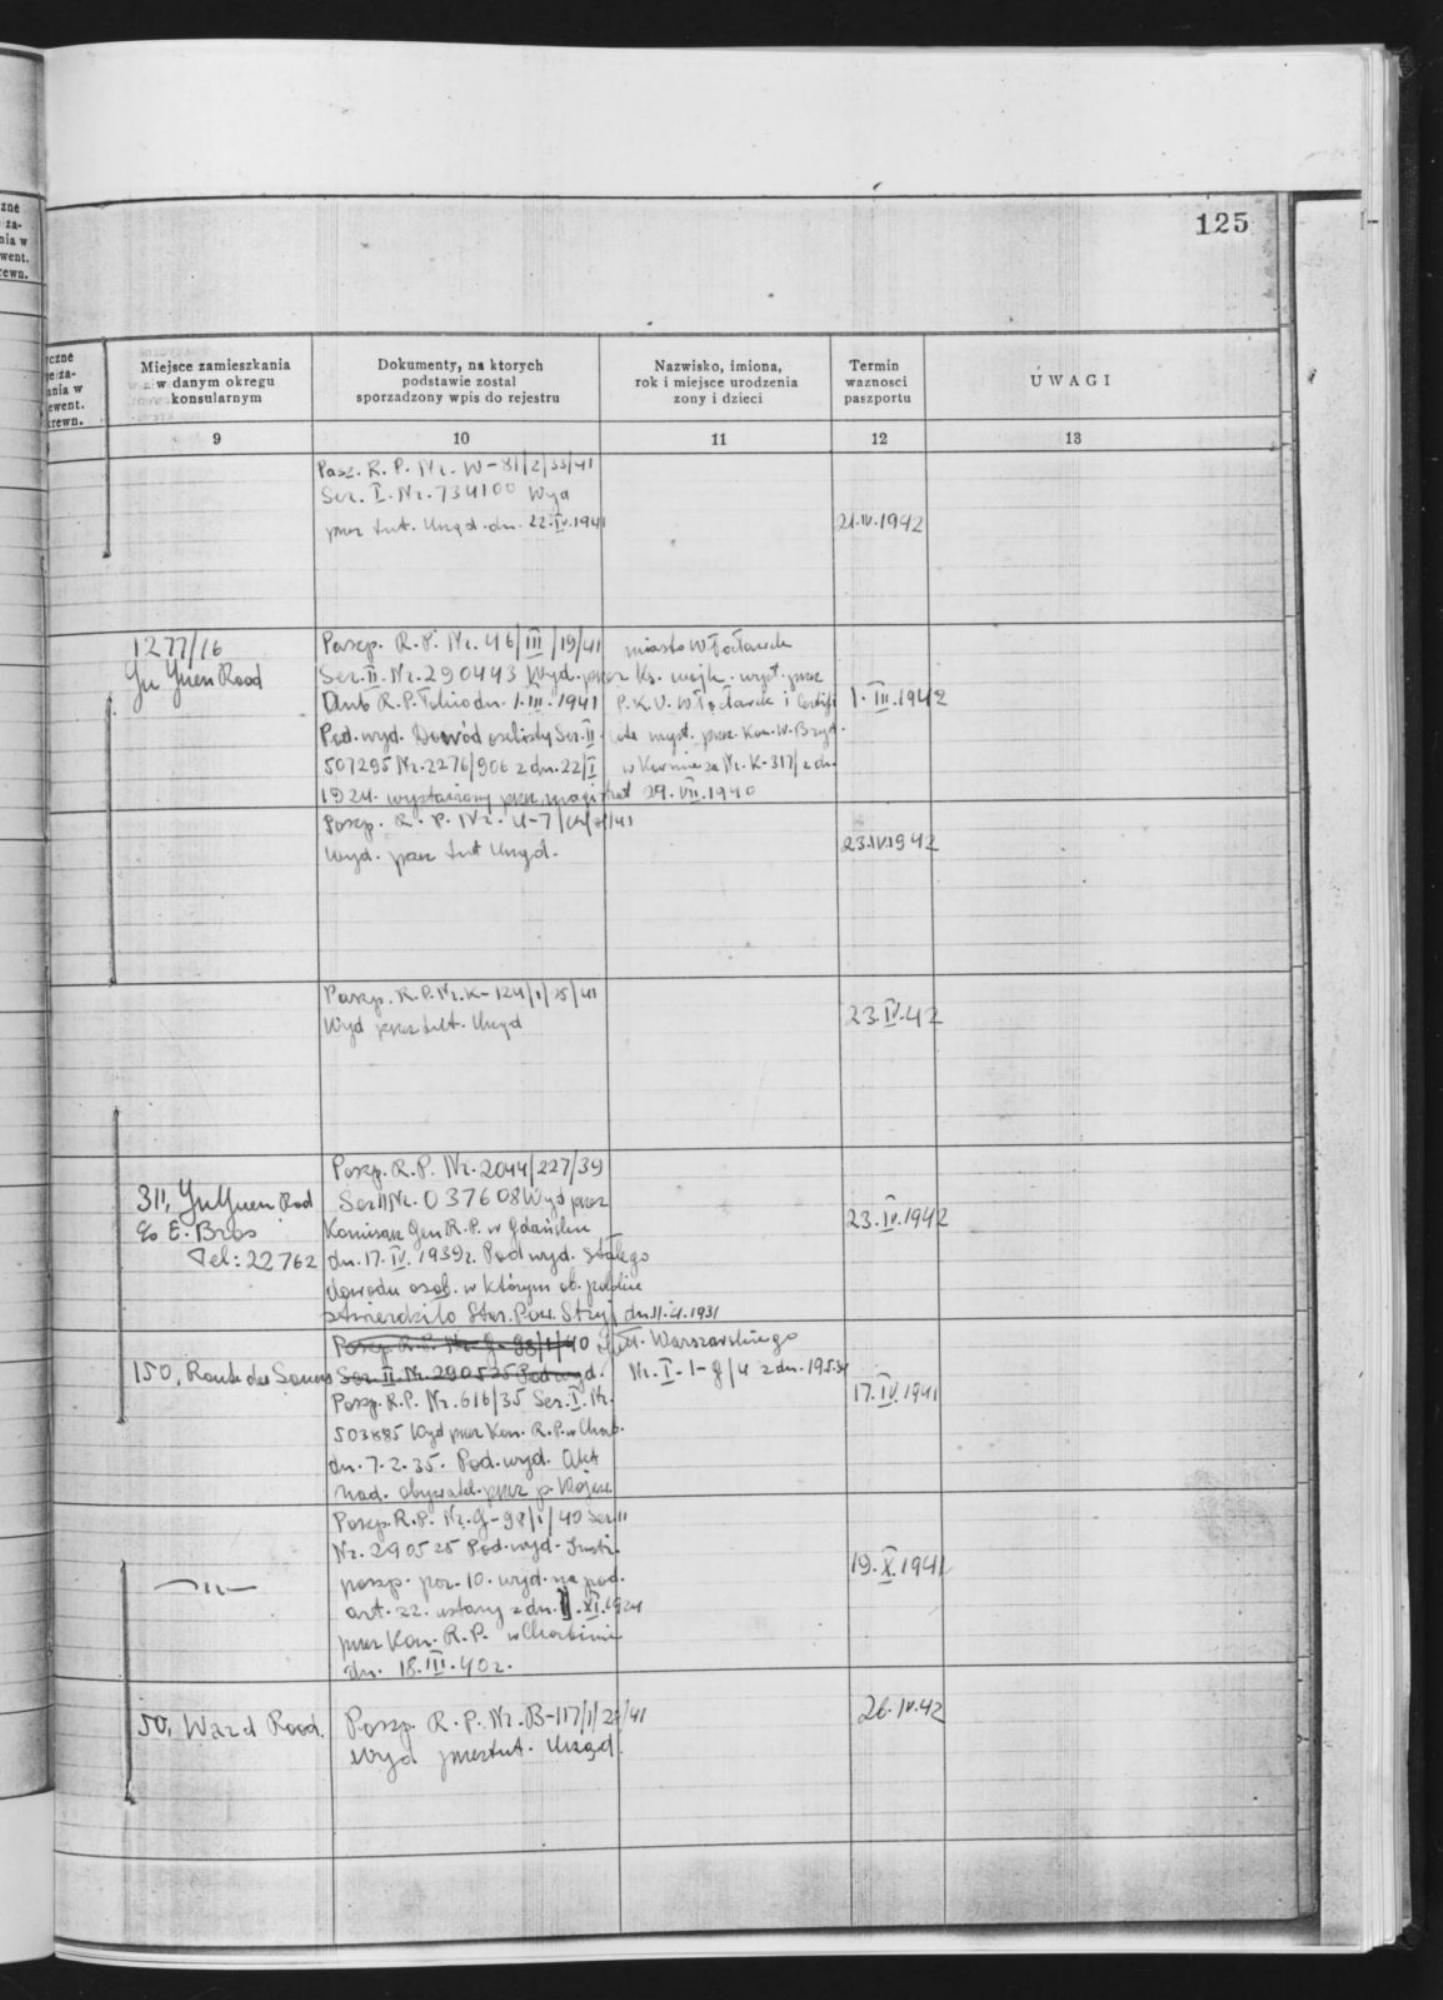 zne
za-
nia w
went.
rewn.
125
yczne
e za-
ania w
ewent.
krewn.
Miejsce zamieszkania
w danym okregu
konsularnym
Dokumenty, na ktorych
podstawie zostal
sporzadzony wpis do rejestru
Nazwisko, imiona,
rok i miejsce urodzenia
zony i dzieci
Termin
waznosci
paszportu
UWAGI
9
10
11
12
13
Pasz. R. P. Nr. W-81/2/33/41
Ser. I. Nr. 734100 Wyd
przez tut. Urząd. dn. 22.IV.1941
21.IV.1942
1277/16
Yu Yuen Road
Paszp. R.P. Nr. 46/III/19/41
Ser. II. Nr. 290443 Wyd. przez
Amb R.P. Tokio dn. 1.III.1941
Pod. wyd. Dowód osobisty Ser. II
507295 Nr. 2276/906 z dn. 22/I
1924. wystawiony przez magistrat
miasto Włocławek
Ks. wojk. wyst. przez
P.K.U. Włocławek i
wyst. przez Kon. W. Bryt.
w Kownie za Nr. K-317/z dn.
29.VII.1940
1.III.1942
Paszp. R. P. Nr. U-7/
Wyd. przez tut Urząd.
23.IV.1942
Paszp. R.P. Nr. K-124/1/25/41
Wyd przez tut. Urząd
23.IV.42
311, Yu Yuen Rod
c/o E. Bros
Tel: 22762
Paszp. R.P. Nr. 2044/227/39
Ser II Nr. 037608 Wyd przez
Komisarz Gen R.P. w Gdańsku
dn. 17.IV.1939r. Pod wyd. stałego
dowodu osob. w którym ob. polskie
potwierdziło Star. Pow. Stryj dn. 11. .1931
23.IV.1942
150, Route des Soeurs
Paszp. R.P. Nr. G-98/1/40
Ser. II. Nr. 290525 Pod wyd.
Paszp. R.P. Nr. 616/35 Ser. I. Nr.
503885 Wyd przez Kon. R.P. w Charb.
dn. 7.2.35. Pod. wyd. Akt
nad. obywatel. przez p. Wojew
Warszawskiego
Nr. I-1-g/4 z dn. 19.5.
17.IV.1941
-"-
Paszp. R.P. Nr. G-98/1/40 Ser II
Nr. 290525 Pod. wyd. Instr.
paszp. por. 10. wyd. na pod.
art. 22. ustawy z dn. .XI.1924
przez Kon. R.P. w Charbinie
dn. 18.III.40r.
19.X.1941
50, Ward Road.
Paszp. R.P. Nr. B-117/1/ /41
Wyd przez tut. Urząd.
26.IV.42